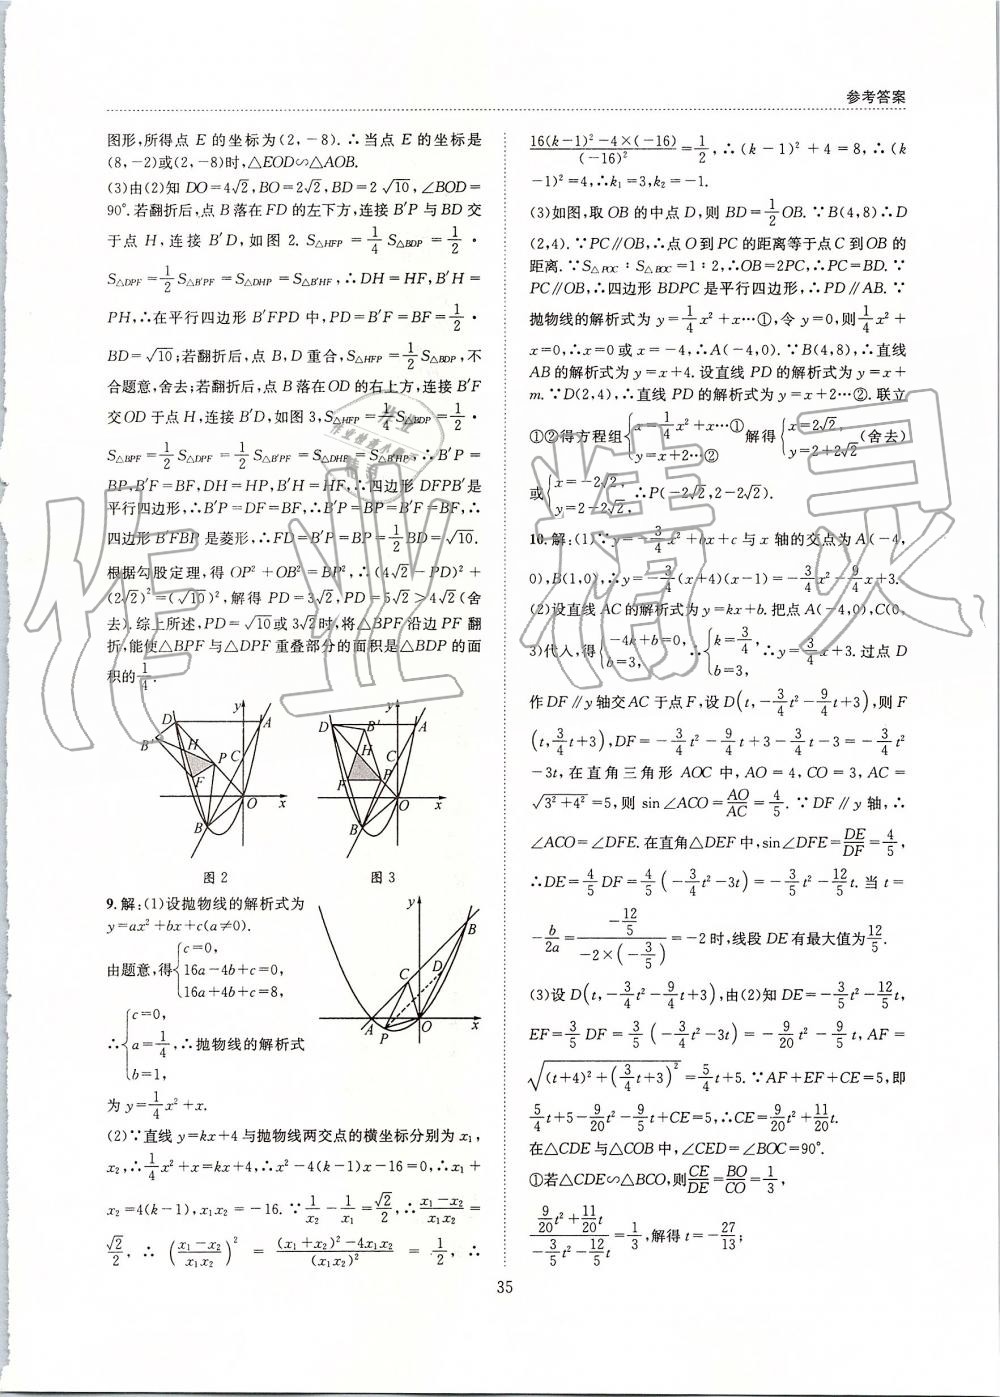 参考答案
图形,所得点 E 的坐标为(2,-8).∴当点 E 的坐标是
(8,-2)或(2,-8)时,△EOD∽△AOB.
(3)由(2)知 DO=4√2,BO=2√2,BD=2√10,∠BOD=
90°.若翻折后,点 B 落在 FD 的左下方,连接 B′P 与 BD 交
于点 H,连接 B′D,如图 2. S△HFP=1/4 S△BDP=1/2·
S△DPF=1/2 S△B′PF=S△DHP=S△B′HF,∴DH=HF,B′H=
PH,∴在平行四边形 B′FPD 中,PD=B′F=BF=1/2·
BD=√10;若翻折后,点 B,D 重合,S△HFP=1/2 S△BDP,不
合题意,舍去;若翻折后,点 B 落在 OD 的右上方,连接 B′F
交 OD 于点 H,连接 B′D,如图 3,S△HFP=1/4 S△BDP=1/2·
S△BPF=1/2 S△DPF=1/2 S△B′PF=S△DHF=S△B′HP,∴B′P=
BP,B′F=BF,DH=HP,B′H=HF,∴四边形 DFPB′是
平行四边形,∴B′P=DF=BF,∴B′P=BP=B′F=BF,∴
四边形 B′FBP 是菱形,∴FD=B′P=BP=1/2 BD=√10.
根据勾股定理,得 OP²+OB²=BP²,∴(4√2-PD)²+
(2√2)²=(√10)²,解得 PD=3√2,PD=5√2>4√2(舍
去).综上所述,PD=√10或 3√2时,将△BPF 沿边 PF 翻
折,能使△BPF 与△DPF 重叠部分的面积是△BDP 的面
积的1/4.
D y A B′ H P C F O x B
D y B′ A H C F P O x B
图 2 图 3
9.解:(1)设抛物线的解析式为
y=ax²+bx+c(a≠0).
由题意,得{c=0, 16a-4b+c=0, 16a+4b+c=8,
∴{c=0, a=1/4, b=1, ∴抛物线的解析式
为 y=1/4 x²+x.
y B C D A P O x
(2)∵直线 y=kx+4 与抛物线两交点的横坐标分别为 x₁,
x₂,∴1/4 x²+x=kx+4,∴x²-4(k-1)x-16=0,∴x₁+
x₂=4(k-1),x₁x₂=-16.∵1/x₂-1/x₁=√2/2,∴(x₁-x₂)/(x₁x₂)=
√2/2,∴((x₁-x₂)/(x₁x₂))²=((x₁+x₂)²-4x₁x₂)/(x₁x₂)²=1/2,∴
(16(k-1)²-4×(-16))/(-16)²=1/2,∴(k-1)²+4=8,∴(k
-1)²=4,∴k₁=3,k₂=-1.
(3)如图,取 OB 的中点 D,则 BD=1/2 OB.∵B(4,8)∴D
(2,4).∵PC∥OB,∴点 O 到 PC 的距离等于点 C 到 OB 的
距离.∵S△POC∶S△BOC=1∶2,∴OB=2PC,∴PC=BD.∵
PC∥OB,∴四边形 BDPC 是平行四边形,∴PD∥AB.∵
抛物线的解析式为 y=1/4 x²+x…①,令 y=0,则1/4 x²+
x=0,∴x=0 或 x=-4,∴A(-4,0).∵B(4,8),∴直线
AB 的解析式为 y=x+4.设直线 PD 的解析式为 y=x+
m.∵D(2,4),∴直线 PD 的解析式为 y=x+2…②.联立
①②得方程组{y=1/4 x²+x…① y=x+2…② 解得{x=2√2, y=2+2√2 (舍去)
或{x=-2√2, y=2-2√2, ∴P(-2√2,2-2√2).
10.解:(1)∵y=-3/4 x²+bx+c 与 x 轴的交点为 A(-4,
0),B(1,0),∴y=-3/4(x+4)(x-1)=-3/4 x²-9/4 x+3.
(2)设直线 AC 的解析式为 y=kx+b.把点 A(-4,0),C(0,
3)代入,得{-4k+b=0, b=3, ∴{k=3/4, b=3, ∴y=3/4 x+3.过点 D
作 DF∥y 轴交 AC 于点 F,设 D(t,-3/4 t²-9/4 t+3),则 F
(t,3/4 t+3),DF=-3/4 t²-9/4 t+3-3/4 t-3=-3/4 t²
-3t,在直角三角形 AOC 中,AO=4,CO=3,AC=
√(3²+4²)=5,则 sin∠ACO=AO/AC=4/5.∵DF∥y 轴,∴
∠ACO=∠DFE.在直角△DEF 中,sin∠DFE=DE/DF=4/5,
∴DE=4/5 DF=4/5(-3/4 t²-3t)=-3/5 t²-12/5 t.当 t=
-b/2a=(-12/5)/(-2×(-3/5))=-2 时,线段 DE 有最大值为12/5.
(3)设 D(t,-3/4 t²-9/4 t+3),由(2)知 DE=-3/5 t²-12/5 t,
EF=3/5 DF=3/5(-3/4 t²-3t)=-9/20 t²-9/5 t,AF=
√((t+4)²+(3/4 t+3)²)=5/4 t+5.∵AF+EF+CE=5,即
5/4 t+5-9/20 t²-9/5 t+CE=5,∴CE=9/20 t²+11/20 t.
在△CDE 与△COB 中,∠CED=∠BOC=90°.
①若△CDE∽△BCO,则CE/DE=BO/CO=1/3,
(9/20 t²+11/20 t)/(-3/5 t²-12/5 t)=1/3,解得 t=-27/13;
35
作业精灵